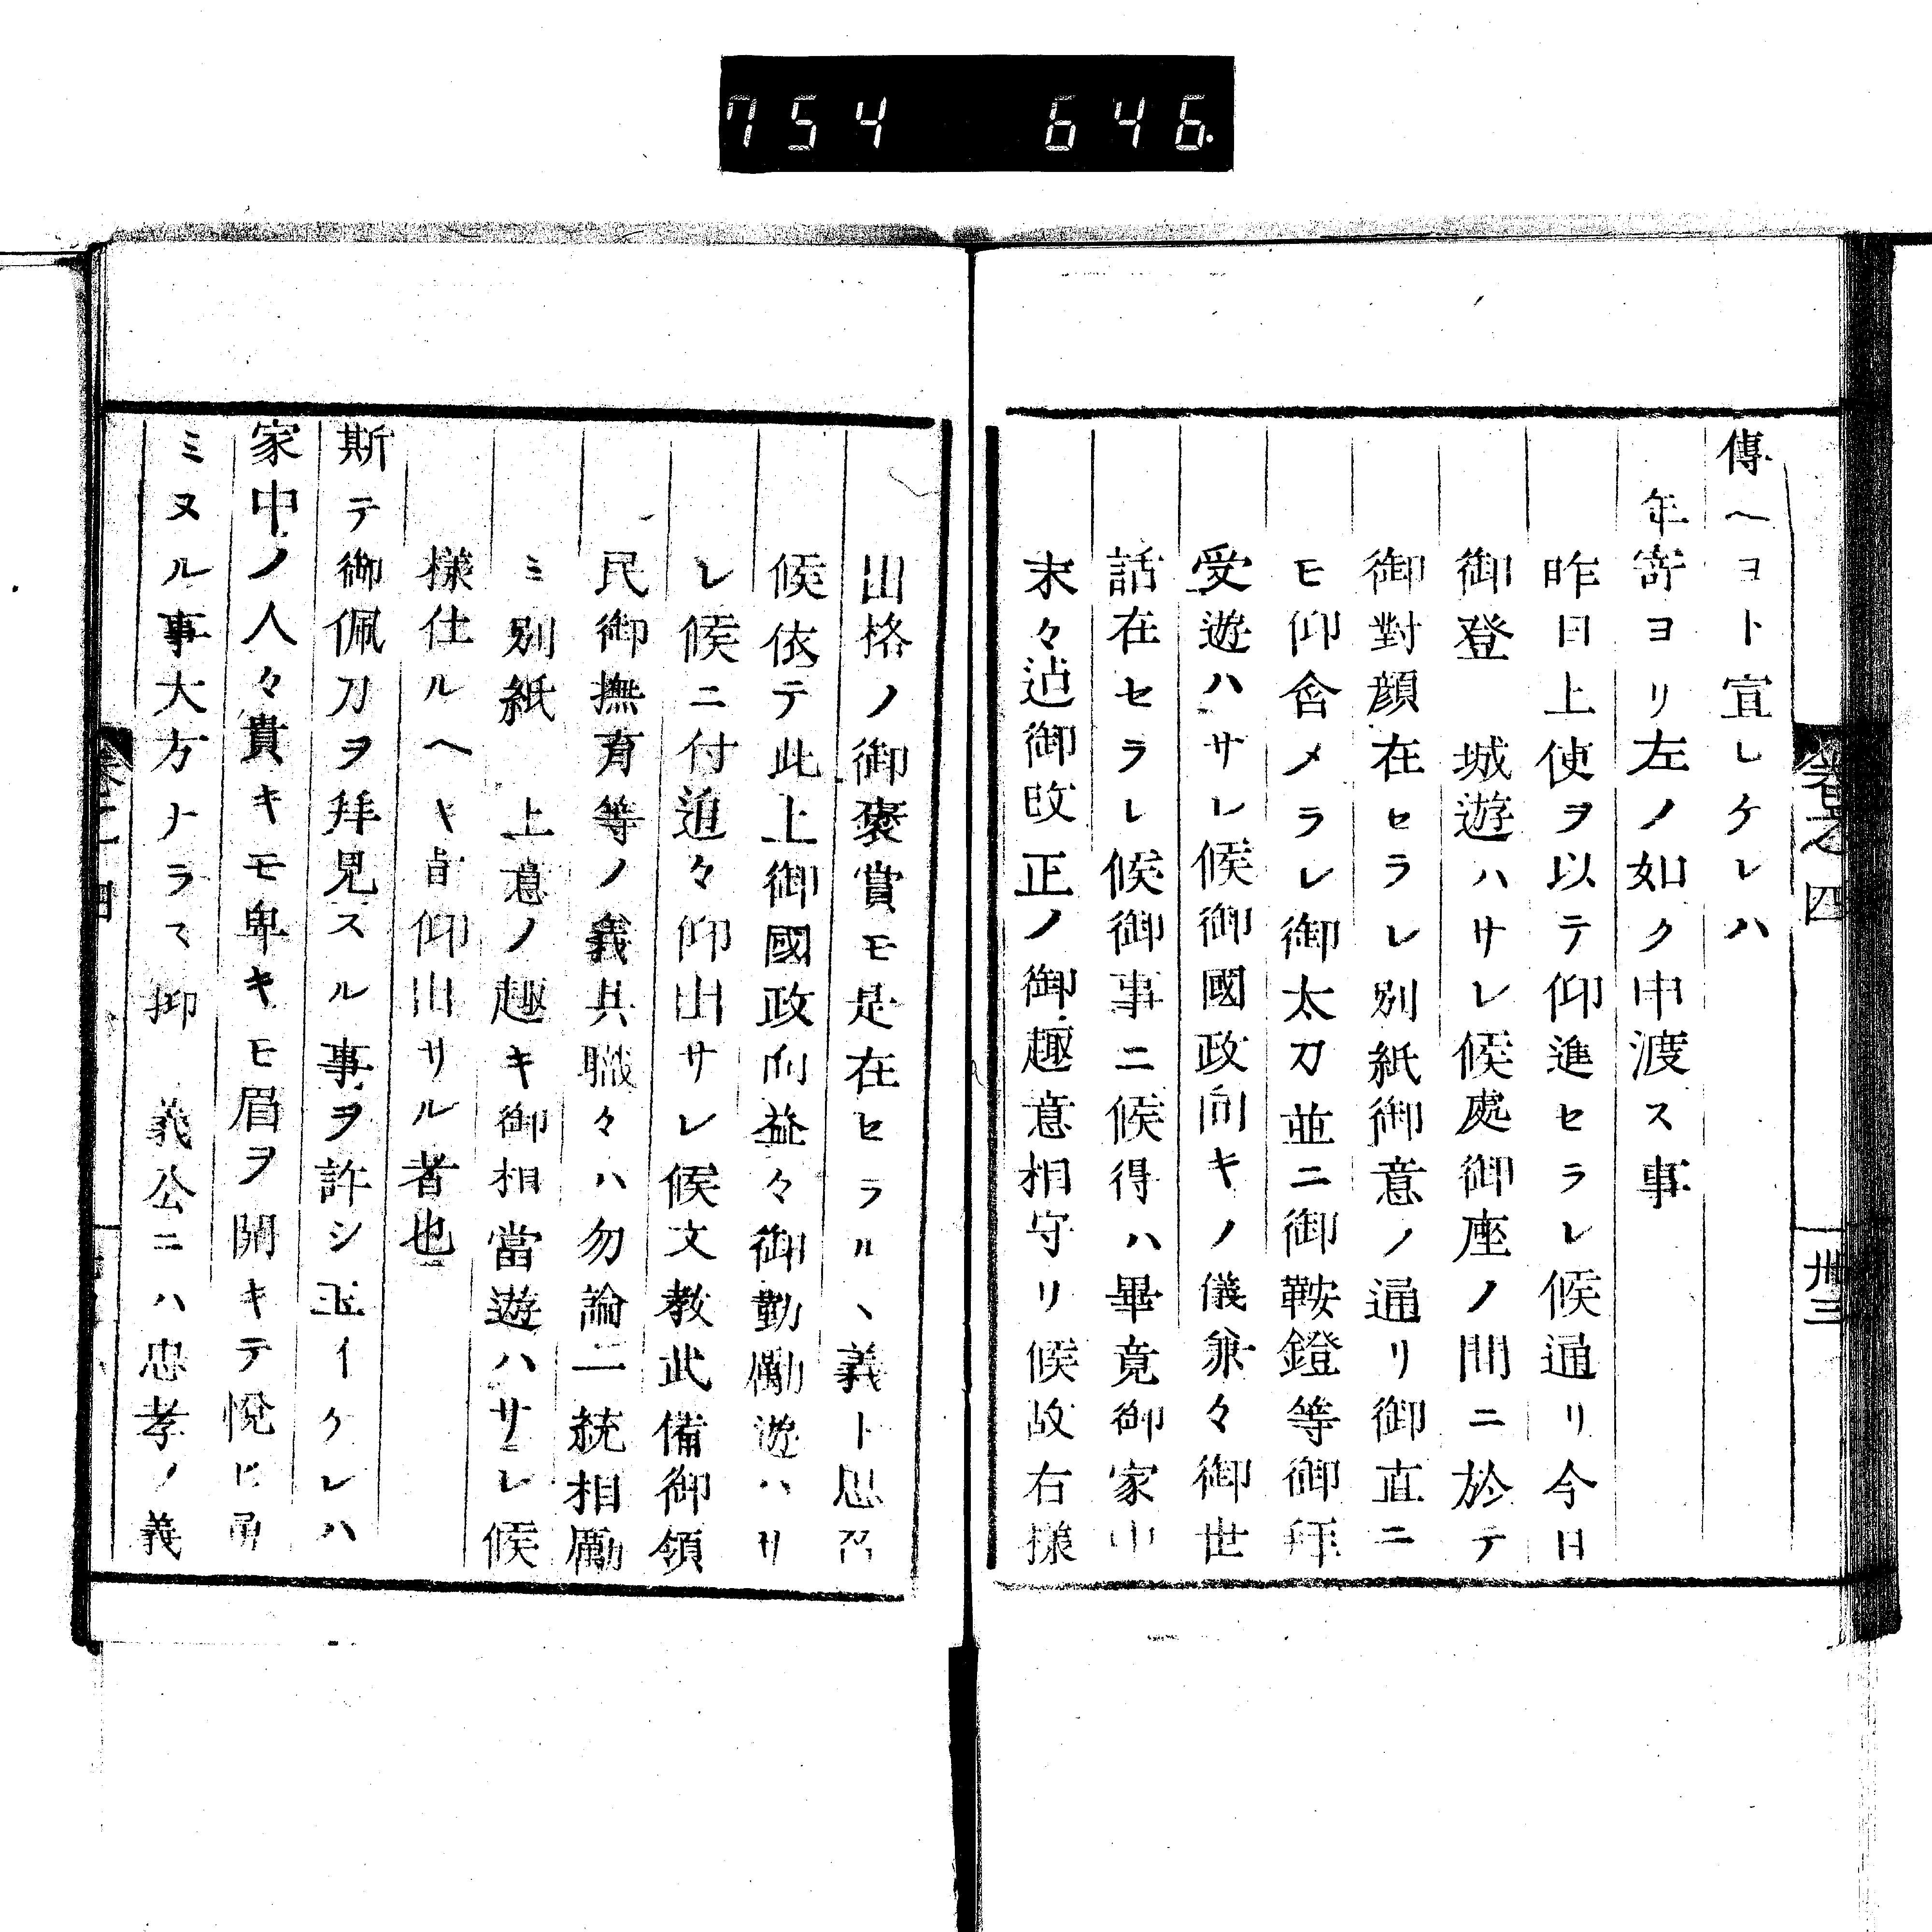 754 646.
卷之四
卅三
傳ヘヨト宣レケレハ
年寄ヨリ左ノ如ク申渡ス事
昨日上使ヲ以テ仰進セラレ候通リ今日
御登　城遊ハサレ候處御座ノ間ニ於テ
御對顔在セラレ別紙御意ノ通リ御直ニ
モ仰含メラレ御太刀並ニ御鞍鐙等御拜
受遊ハサレ候御國政向キノ儀兼々御世
話在セラレ候御事ニ候得ハ畢竟御家中
末々迠御改正ノ御趣意相守リ候故右樣
出格ノ御褒賞モ是在セラルヽ義ト思召
候依テ此上御國政向益々御勤勵遊ハサ
レ候ニ付追々仰出サレ候文教武備御領
民御撫育等ノ義其職々ハ勿論一統相勵
ミ別紙　上意ノ趣キ御相當遊ハサレ候
樣仕ルヘキ旨仰出サル者也
斯テ御佩刀ヲ拜見スル事ヲ許シ玉イケレハ
家中ノ人々貴キモ卑キモ眉ヲ開キテ悅ヒ勇
ミヌル事大方ナラス抑　義公ニハ忠孝ノ義